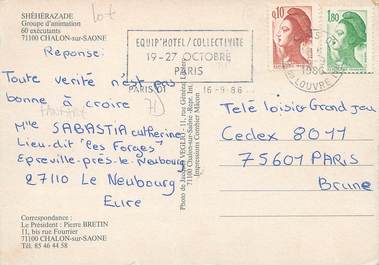 SHÉHÉRAZADE
Groupe d'animation
60 exécutants
71100 CHALON-sur-SAONE
Reponse:
Toute verité n'est pas
bonne à croire
Mme SABASTIA Catherine
Lieu-dit "les Forges"
Epreville-près-le Neubourg
27110 Le Neubourg
Eure
Correspondance :
Le Président : Pierre BRETIN
11, bis rue Fourrier
71100 CHALON-sur-SAONE
Tél. 85 46 44 58
EQUIP'HOTEL/COLLECTIVITE
19-27 OCTOBRE
PARIS
PARIS 01
16-9-86
0,10
1,80
1986
LOUVRE
71100 Chalon-sur-Saône
Impressions Combier Mâcon
Tele loisir Grand jeu
Cedex 8011
75601 PARIS
Brune